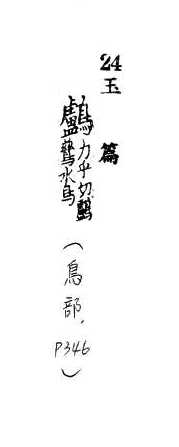 24 玉篇
鸕力乎切鸕鷀水鳥
(鳥部，P346)